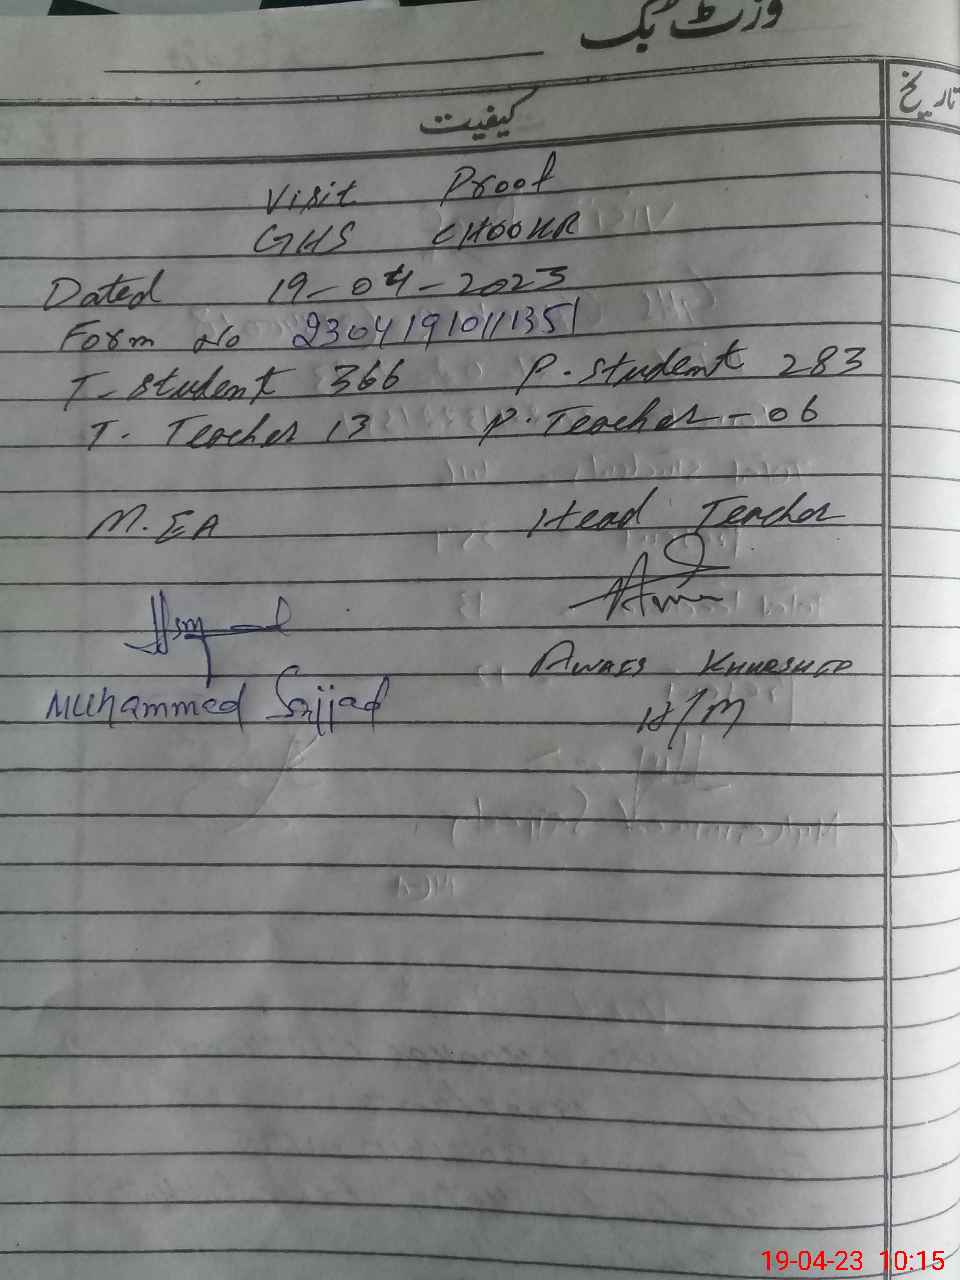 وزٹ بک
کیفیت
تاریخ
Visit Proof
GHS CHOOKR
Dated 19-04-2023
Form No 2304191011351
T-student 366 P.student 283
T. Teacher 13 P.Teacher-06
M.EA Head Teacher
Muhammed Sajjad
Awais Khurshed
H/M
19-04-23 10:15